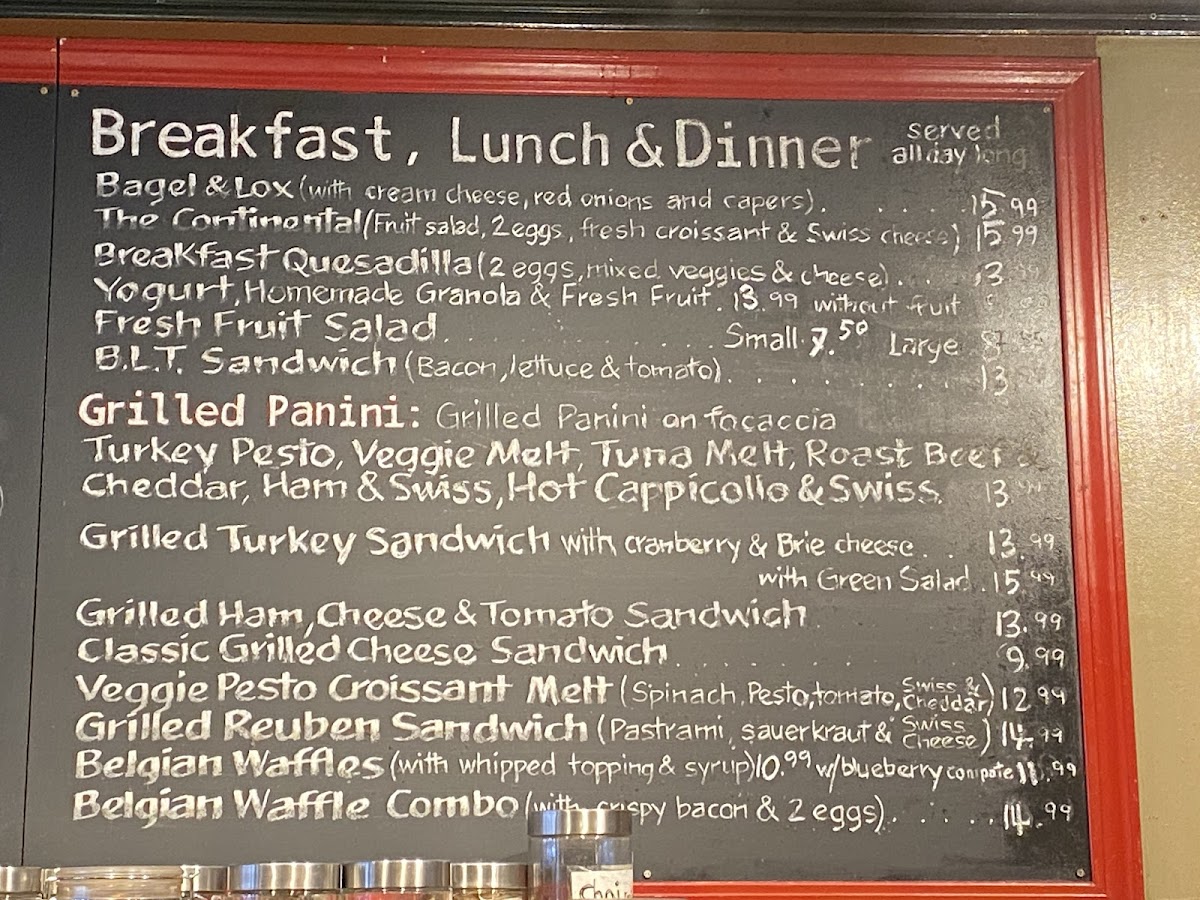 Breakfast, Lunch & Dinner served all day long
Bagel & Lox (with cream cheese, red onions and capers). . . . . 15.99
The Continental (Fruit salad, 2 eggs, fresh croissant & Swiss cheese) 15.99
Breakfast Quesadilla (2 eggs, mixed veggies & cheese). . . 13
Yogurt, Homemade Granola & Fresh Fruit. 13.99 without fruit
Fresh Fruit Salad. . . . . . . . . . . Small 7.50 Large
B.L.T. Sandwich (Bacon, lettuce & tomato). . . . . . . . . 13
Grilled Panini: Grilled Panini on focaccia
Turkey Pesto, Veggie Melt, Tuna Melt, Roast Beef &
Cheddar, Ham & Swiss, Hot Cappicollo & Swiss 13
Grilled Turkey Sandwich with cranberry & Brie cheese . . 13.99
with Green Salad . 15.99
Grilled Ham, Cheese & Tomato Sandwich 13.99
Classic Grilled Cheese Sandwich. . . . . . . 9.99
Veggie Pesto Croissant Melt (Spinach, Pesto, tomato, Swiss & Cheddar) 12.99
Grilled Reuben Sandwich (Pastrami, sauerkraut & Swiss Cheese) 14.99
Belgian Waffles (with whipped topping & syrup) 10.99 w/blueberry compote 11.99
Belgian Waffle Combo (with crispy bacon & 2 eggs). . . . . 14.99